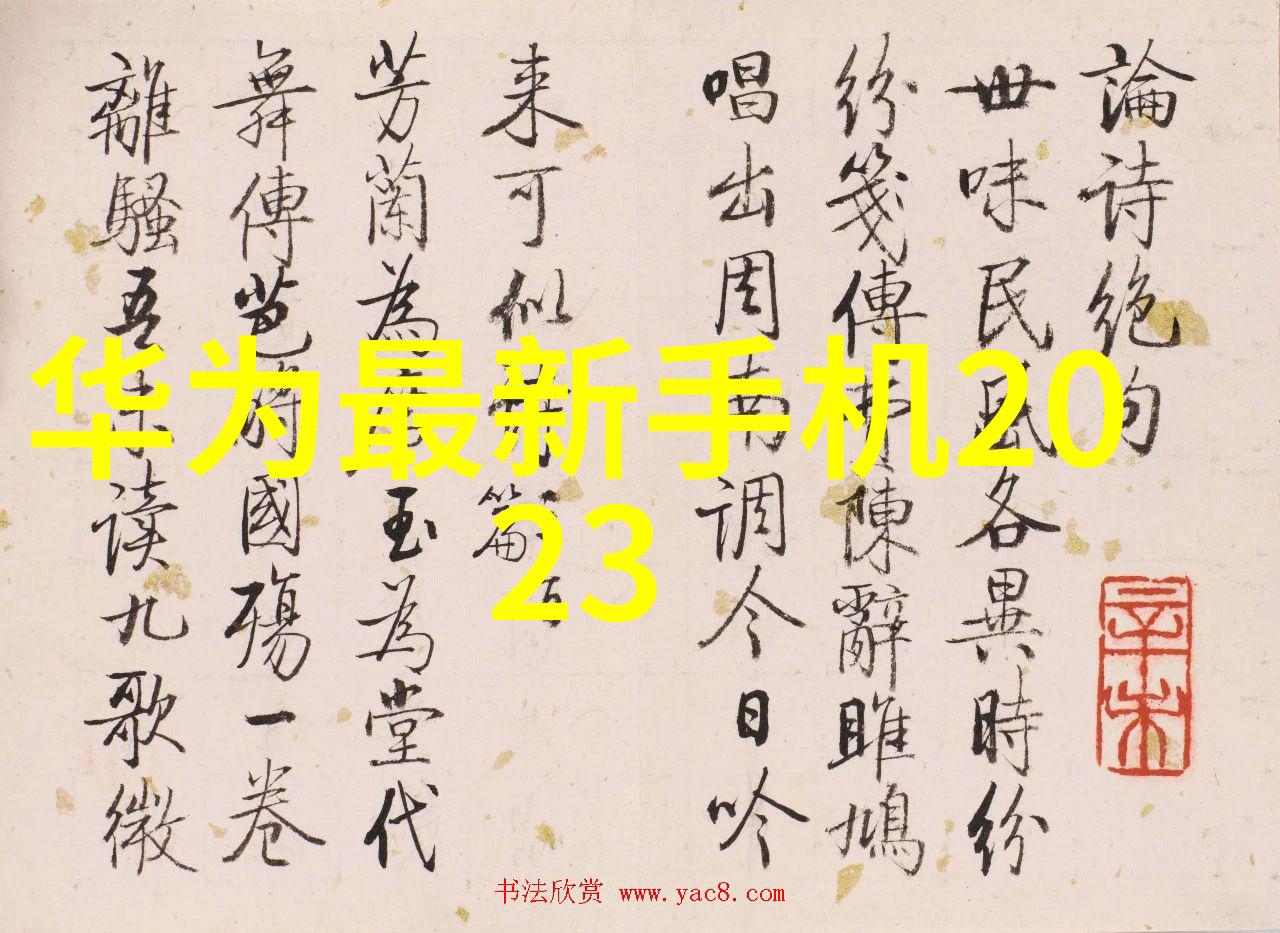 論诗絶句
世味民各異時紛
紛箋傳陳辭雎鳩
唱出周南调今日吟
来可似
芳蘭為玉為堂代
舞傳芭國殤一卷
離騷吾读九歌微
辛未
华为最新手机20
23
书法欣赏 www.yac8.com